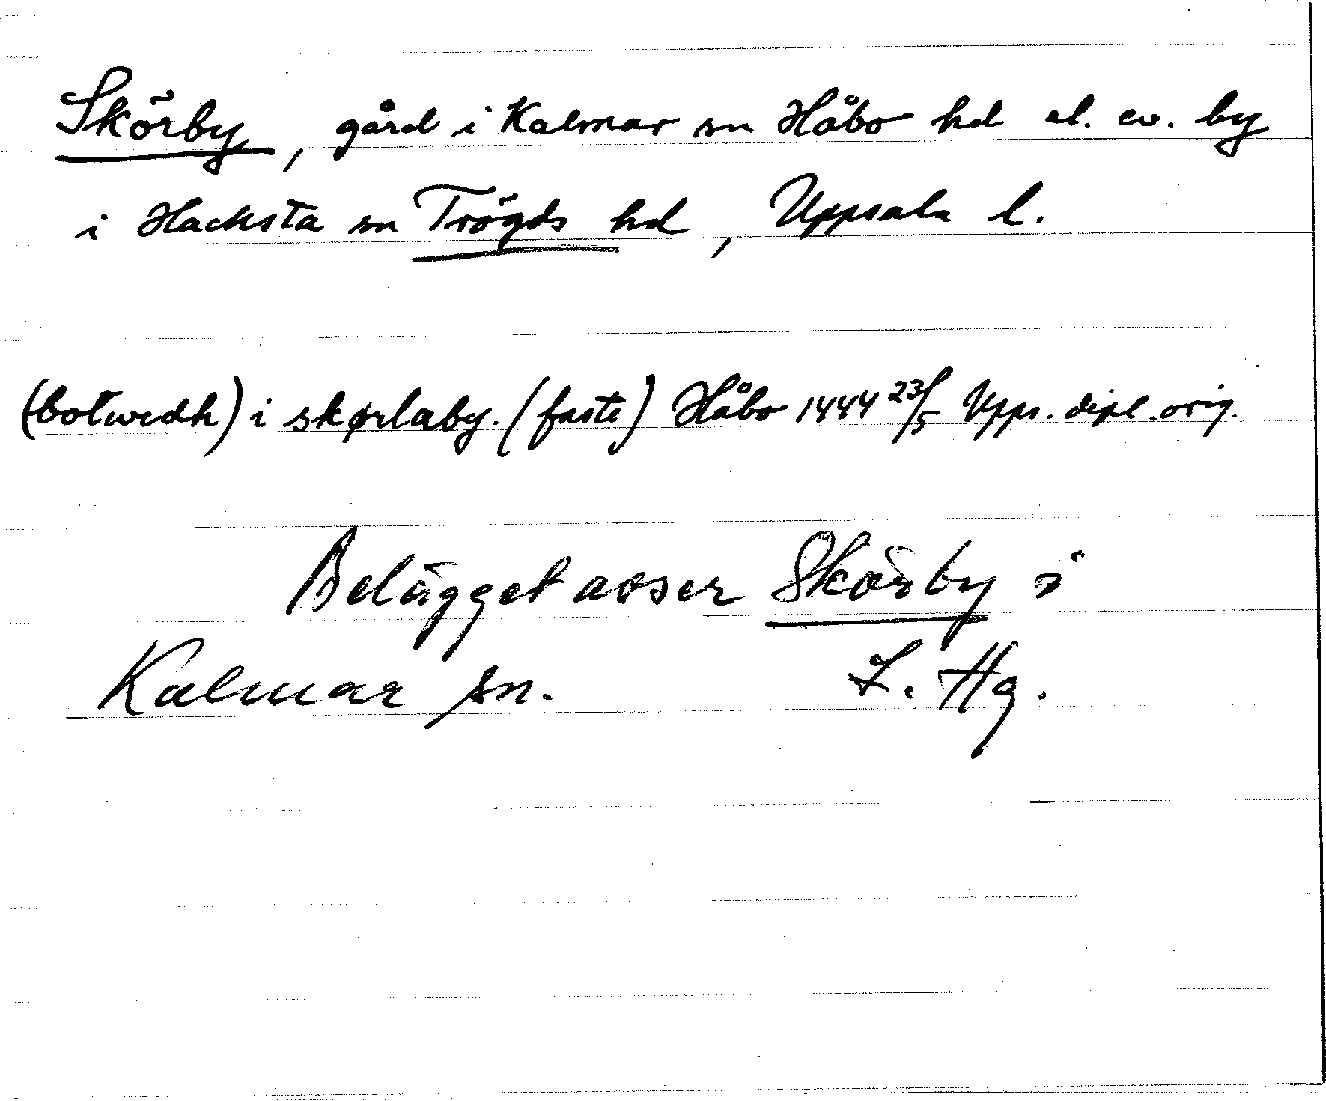 Skörby, gård i Kalmar sn Håbo hd el. ev. by
i Hacksta sn Trögds hd, Uppsala l.
(botwedh) i skørlaby. (faste) Håbo 1444 23/5 Upps. dipl. orig.
Belägget avser Skörby i
Kalmar sn. L. Hg.